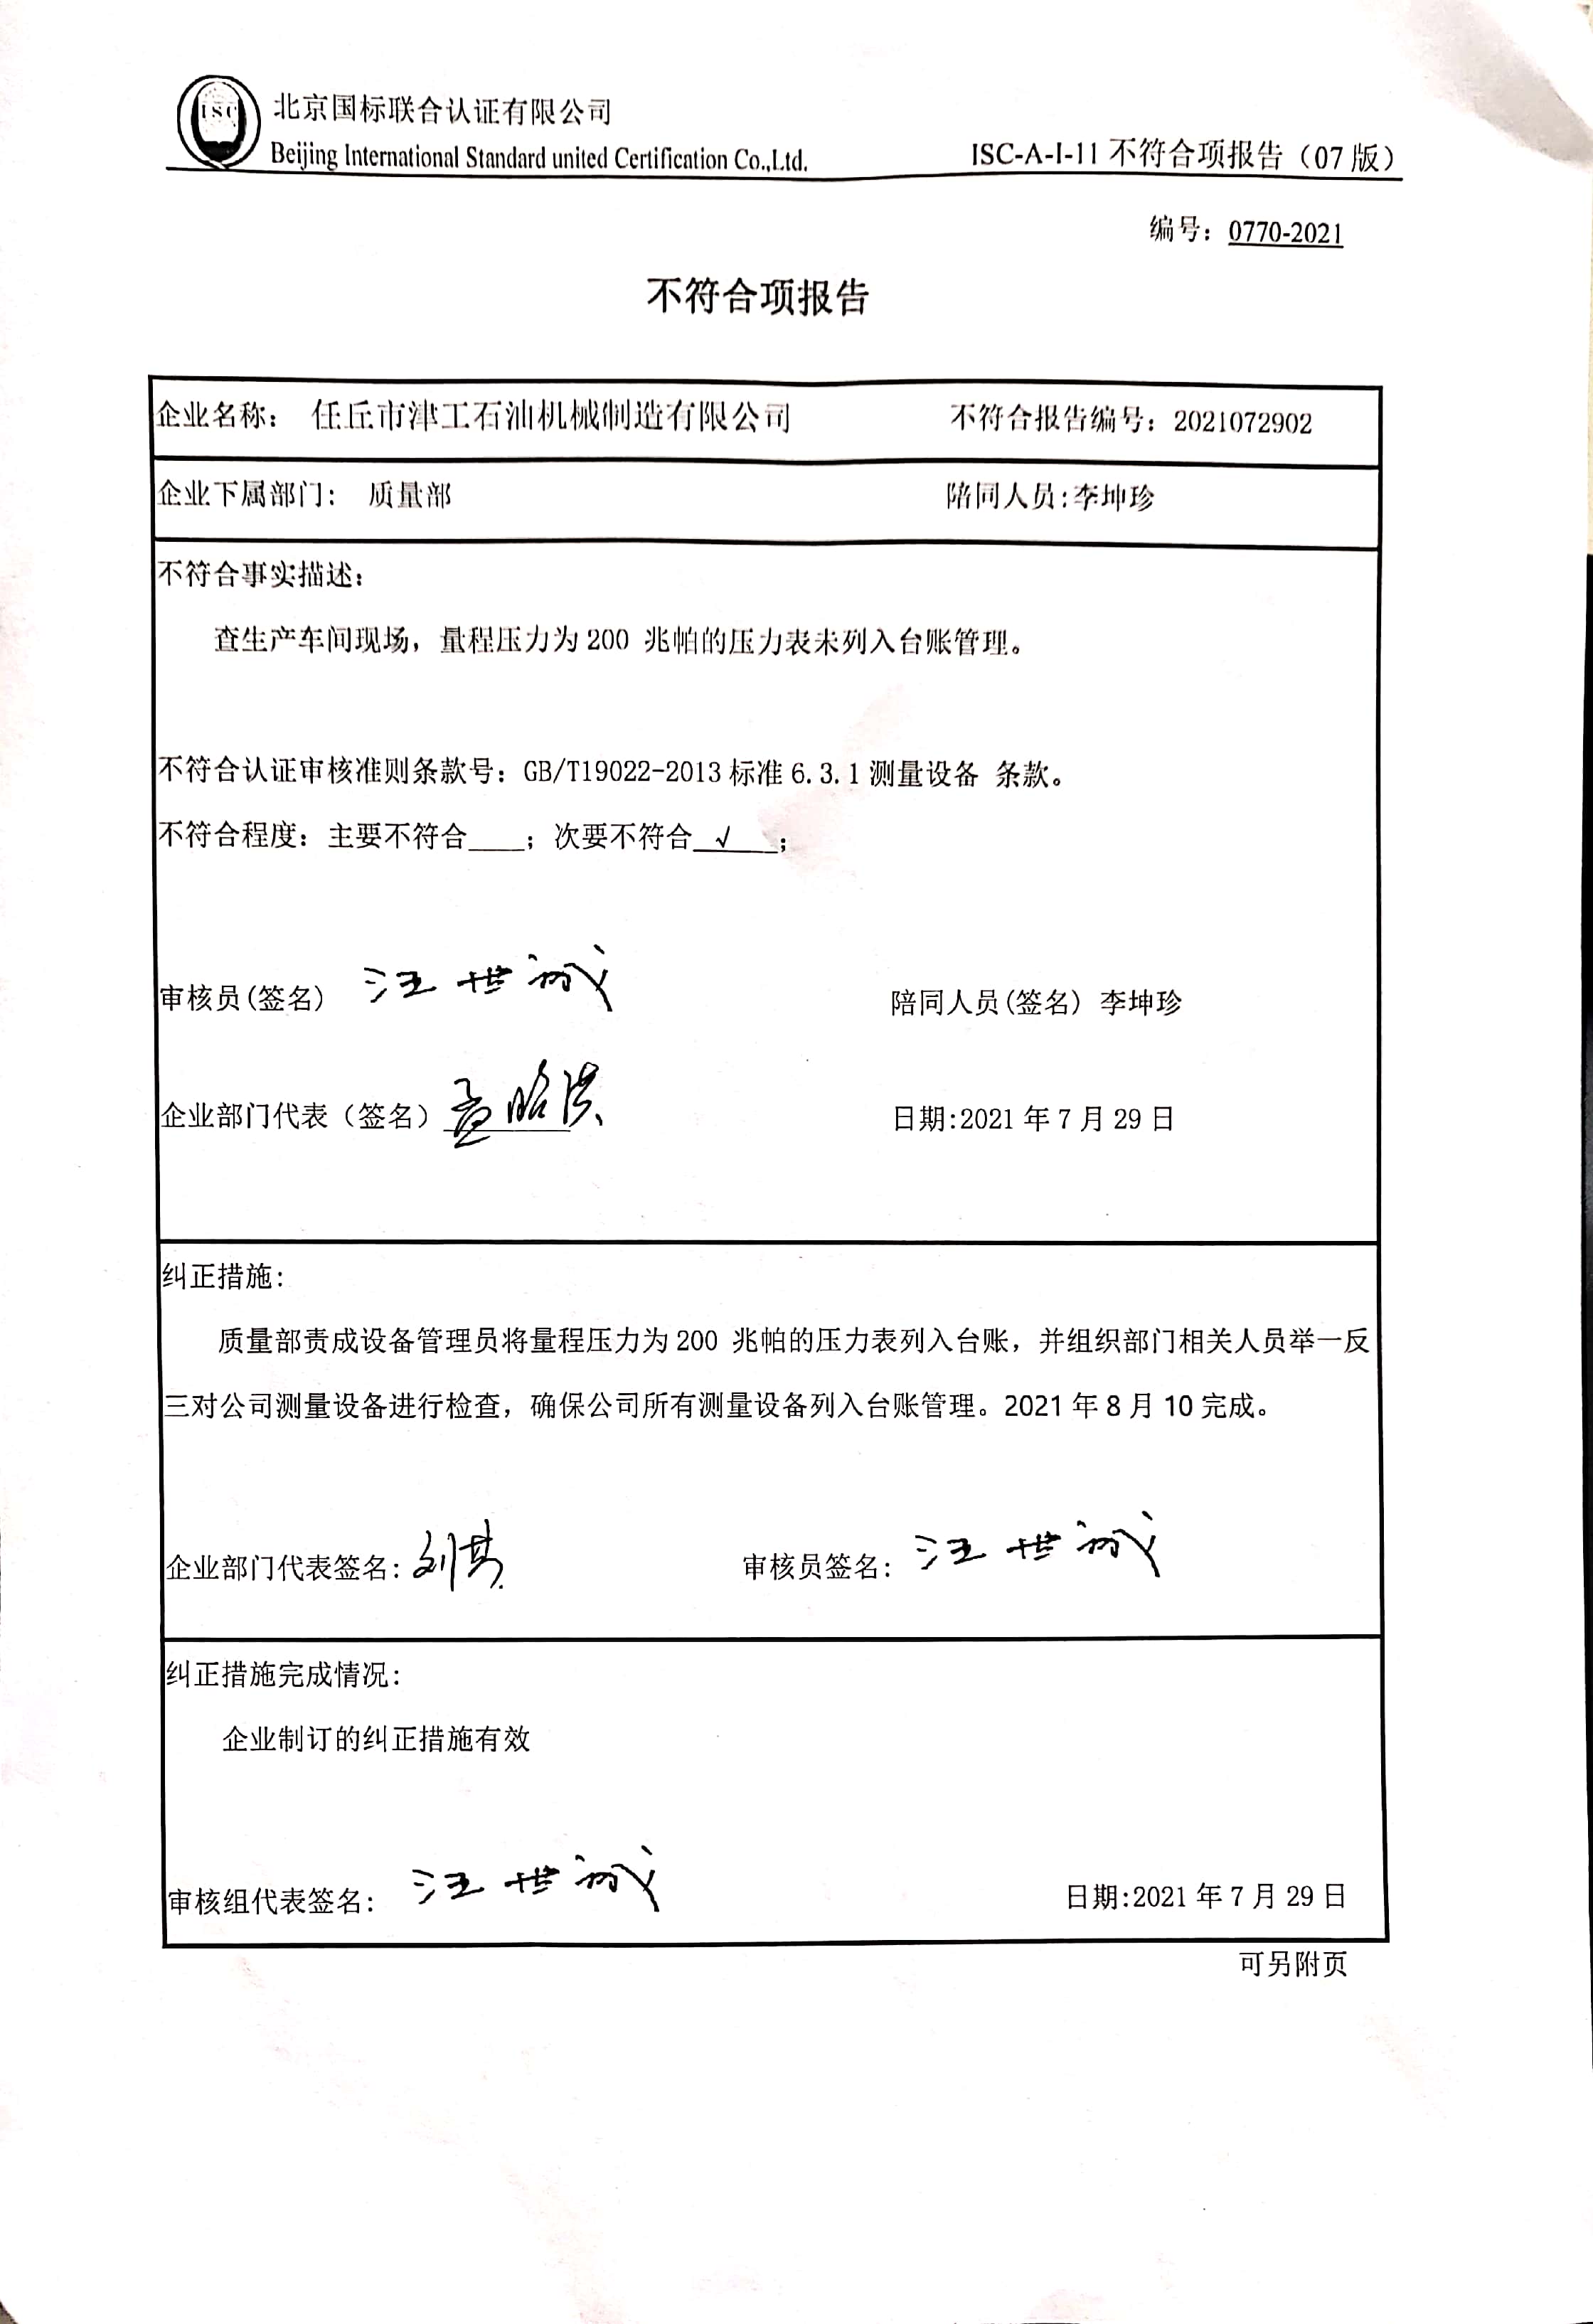 ISC
北京国标联合认证有限公司
Beijing International Standard united Certification Co.,Ltd.
ISC-A-I-11 不符合项报告（07 版）
编号：0770-2021
不符合项报告
企业名称： 任丘市津工石油机械制造有限公司 不符合报告编号：2021072902
企业下属部门： 质量部 陪同人员:李坤珍
不符合事实描述：
查生产车间现场，量程压力为 200 兆帕的压力表未列入台账管理。
不符合认证审核准则条款号：GB/T19022-2013 标准 6.3.1 测量设备 条款。
不符合程度：主要不符合____；次要不符合 √ ；
审核员(签名) 汪世诚 陪同人员(签名) 李坤珍
企业部门代表（签名）孟昭洪 日期:2021 年 7 月 29 日
纠正措施：
质量部责成设备管理员将量程压力为 200 兆帕的压力表列入台账，并组织部门相关人员举一反
三对公司测量设备进行检查，确保公司所有测量设备列入台账管理。2021 年 8 月 10 完成。
企业部门代表签名: 刘 审核员签名: 汪世诚
纠正措施完成情况:
企业制订的纠正措施有效
审核组代表签名: 汪世诚 日期:2021 年 7 月 29 日
可另附页